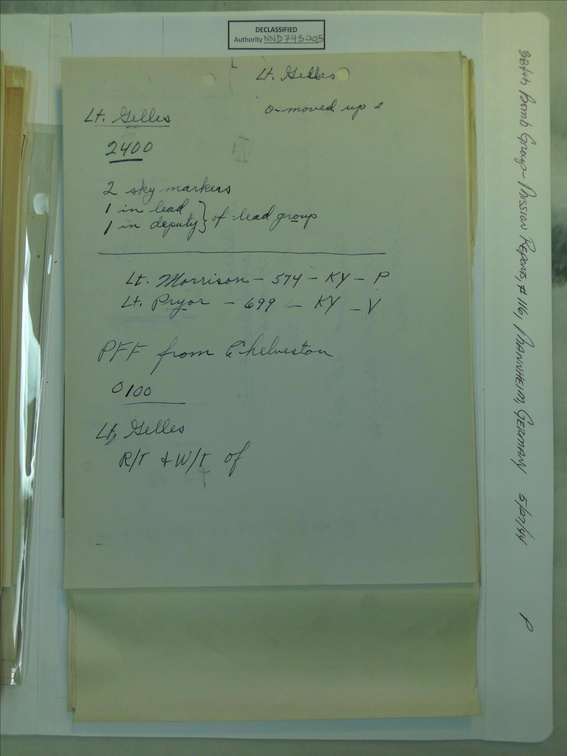 DECLASSIFIED
Authority NND 745005
Lt. Gelles
0-moved up 2
Lt. Gelles
2400
2 sky markers
1 in lead
1 in deputy } of lead group
Lt. Morrison - 574 - KY - P
Lt. Pryor - 699 - KY - V
PFF from Chelveston
0100
Lt. Gelles
R/T + W/T of
Bomb Group - Mission Reports, #116, Mannheim, Germany 5/27/44 P